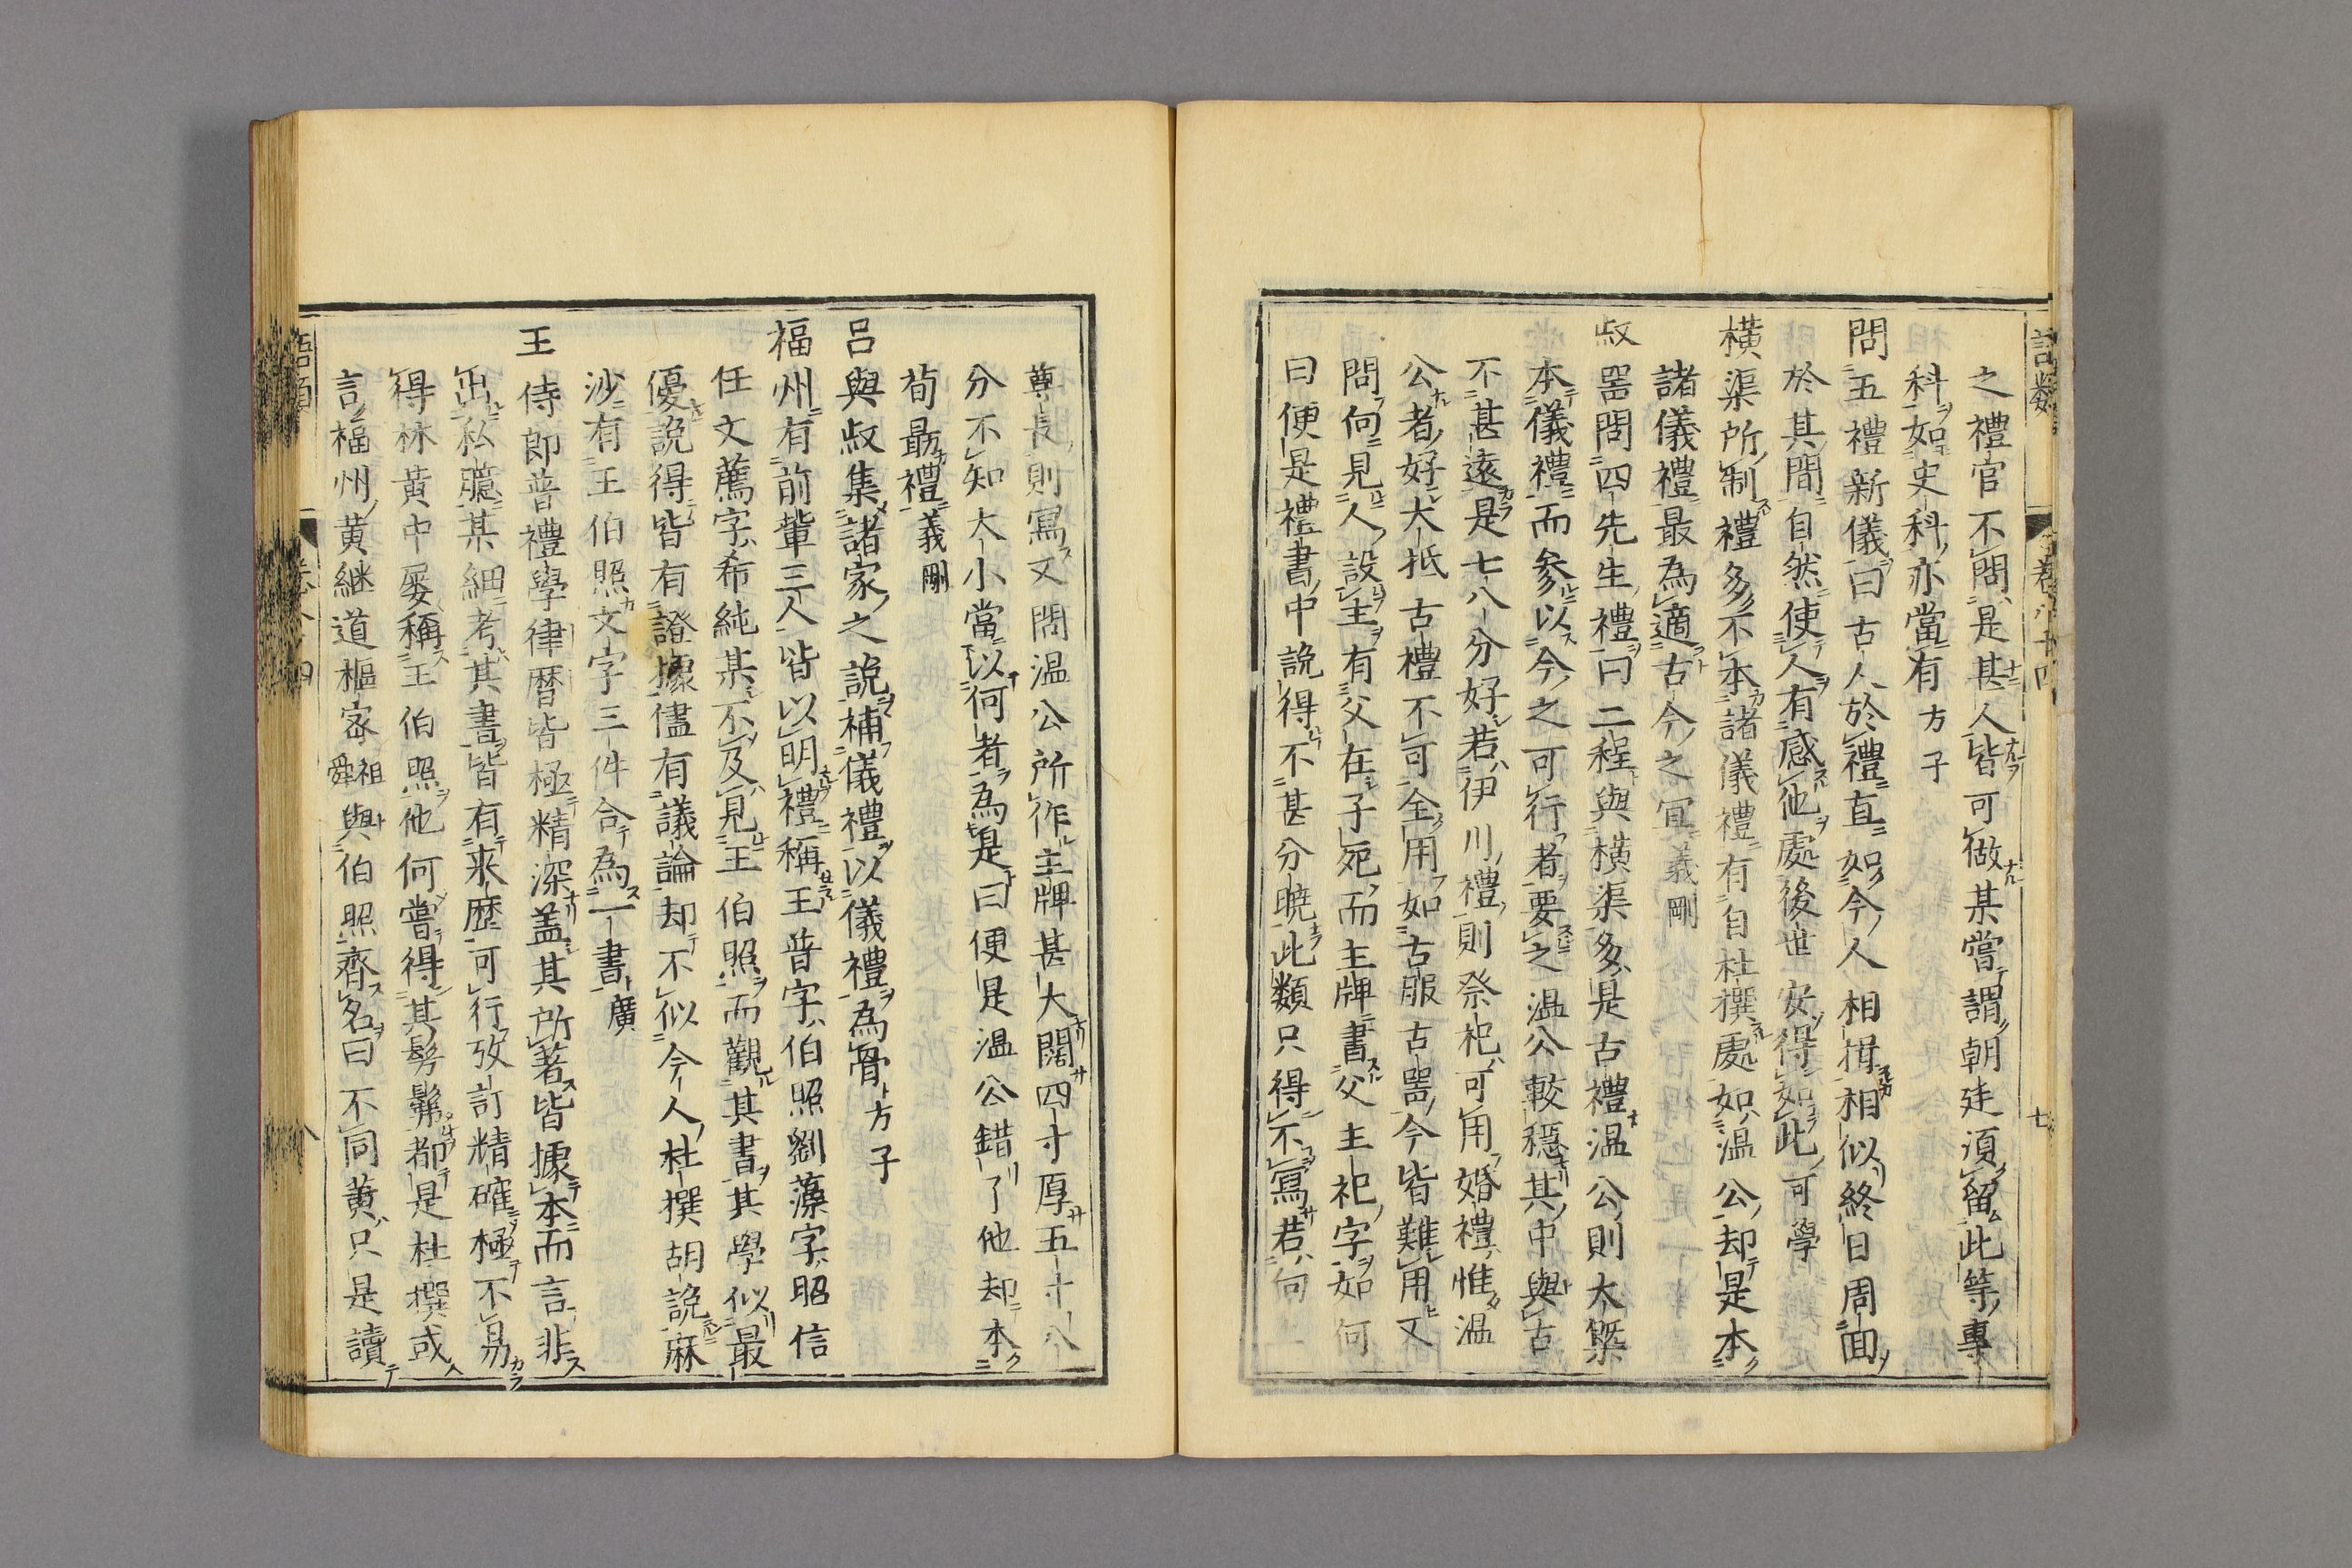 之禮官不問是甚人皆可做某嘗謂朝廷須留此等專
科如史科亦當有方子
問五禮新儀曰古人於禮直如今人相揖相似終日周面
於其間自然使人有感他處後世安得如此可學
橫渠所制禮多不本諸儀禮有自杜撰處如溫公却是本
諸儀禮最為適古今之宜義剛
叔噐問四先生禮曰二程與橫渠多是古禮溫公則大槩
本儀禮而參以今之可行者要之溫公較穩其中與古
不甚遠是七八分好若伊川禮則祭祀可用婚禮惟溫
公者好大抵古禮不可全用如古服古噐今皆難用又
問向見人設主有父在子死而主牌書父主祀字如何
曰便是禮書中說得不甚分曉此類只得不寫若向上
尊長則寫又問溫公所作主牌甚大闊四寸厚五寸八
分不知大小當以何者為是曰便是溫公錯了他却本
荀勗禮義剛
呂與叔集諸家之說補儀禮以儀禮為骨方子
福州有前輩三人皆以明禮稱王普字伯照劉藻字昭信
任文薦字希純某不及見王伯照而觀其書其學似最
優說得皆有證據儘有議論却不似今人杜撰胡說麻
沙有王伯照文字三件合為一書廣
王侍郎普禮學律曆皆極精深盖其所著皆據本而言非
出私臆某細考其書皆有来歷可行攷訂精確極不易
得林黃中屡稱王伯照他何嘗得其髣髴都是杜撰或
言福州黃継道樞宻祖舜與伯照齊名曰不同黃只是讀